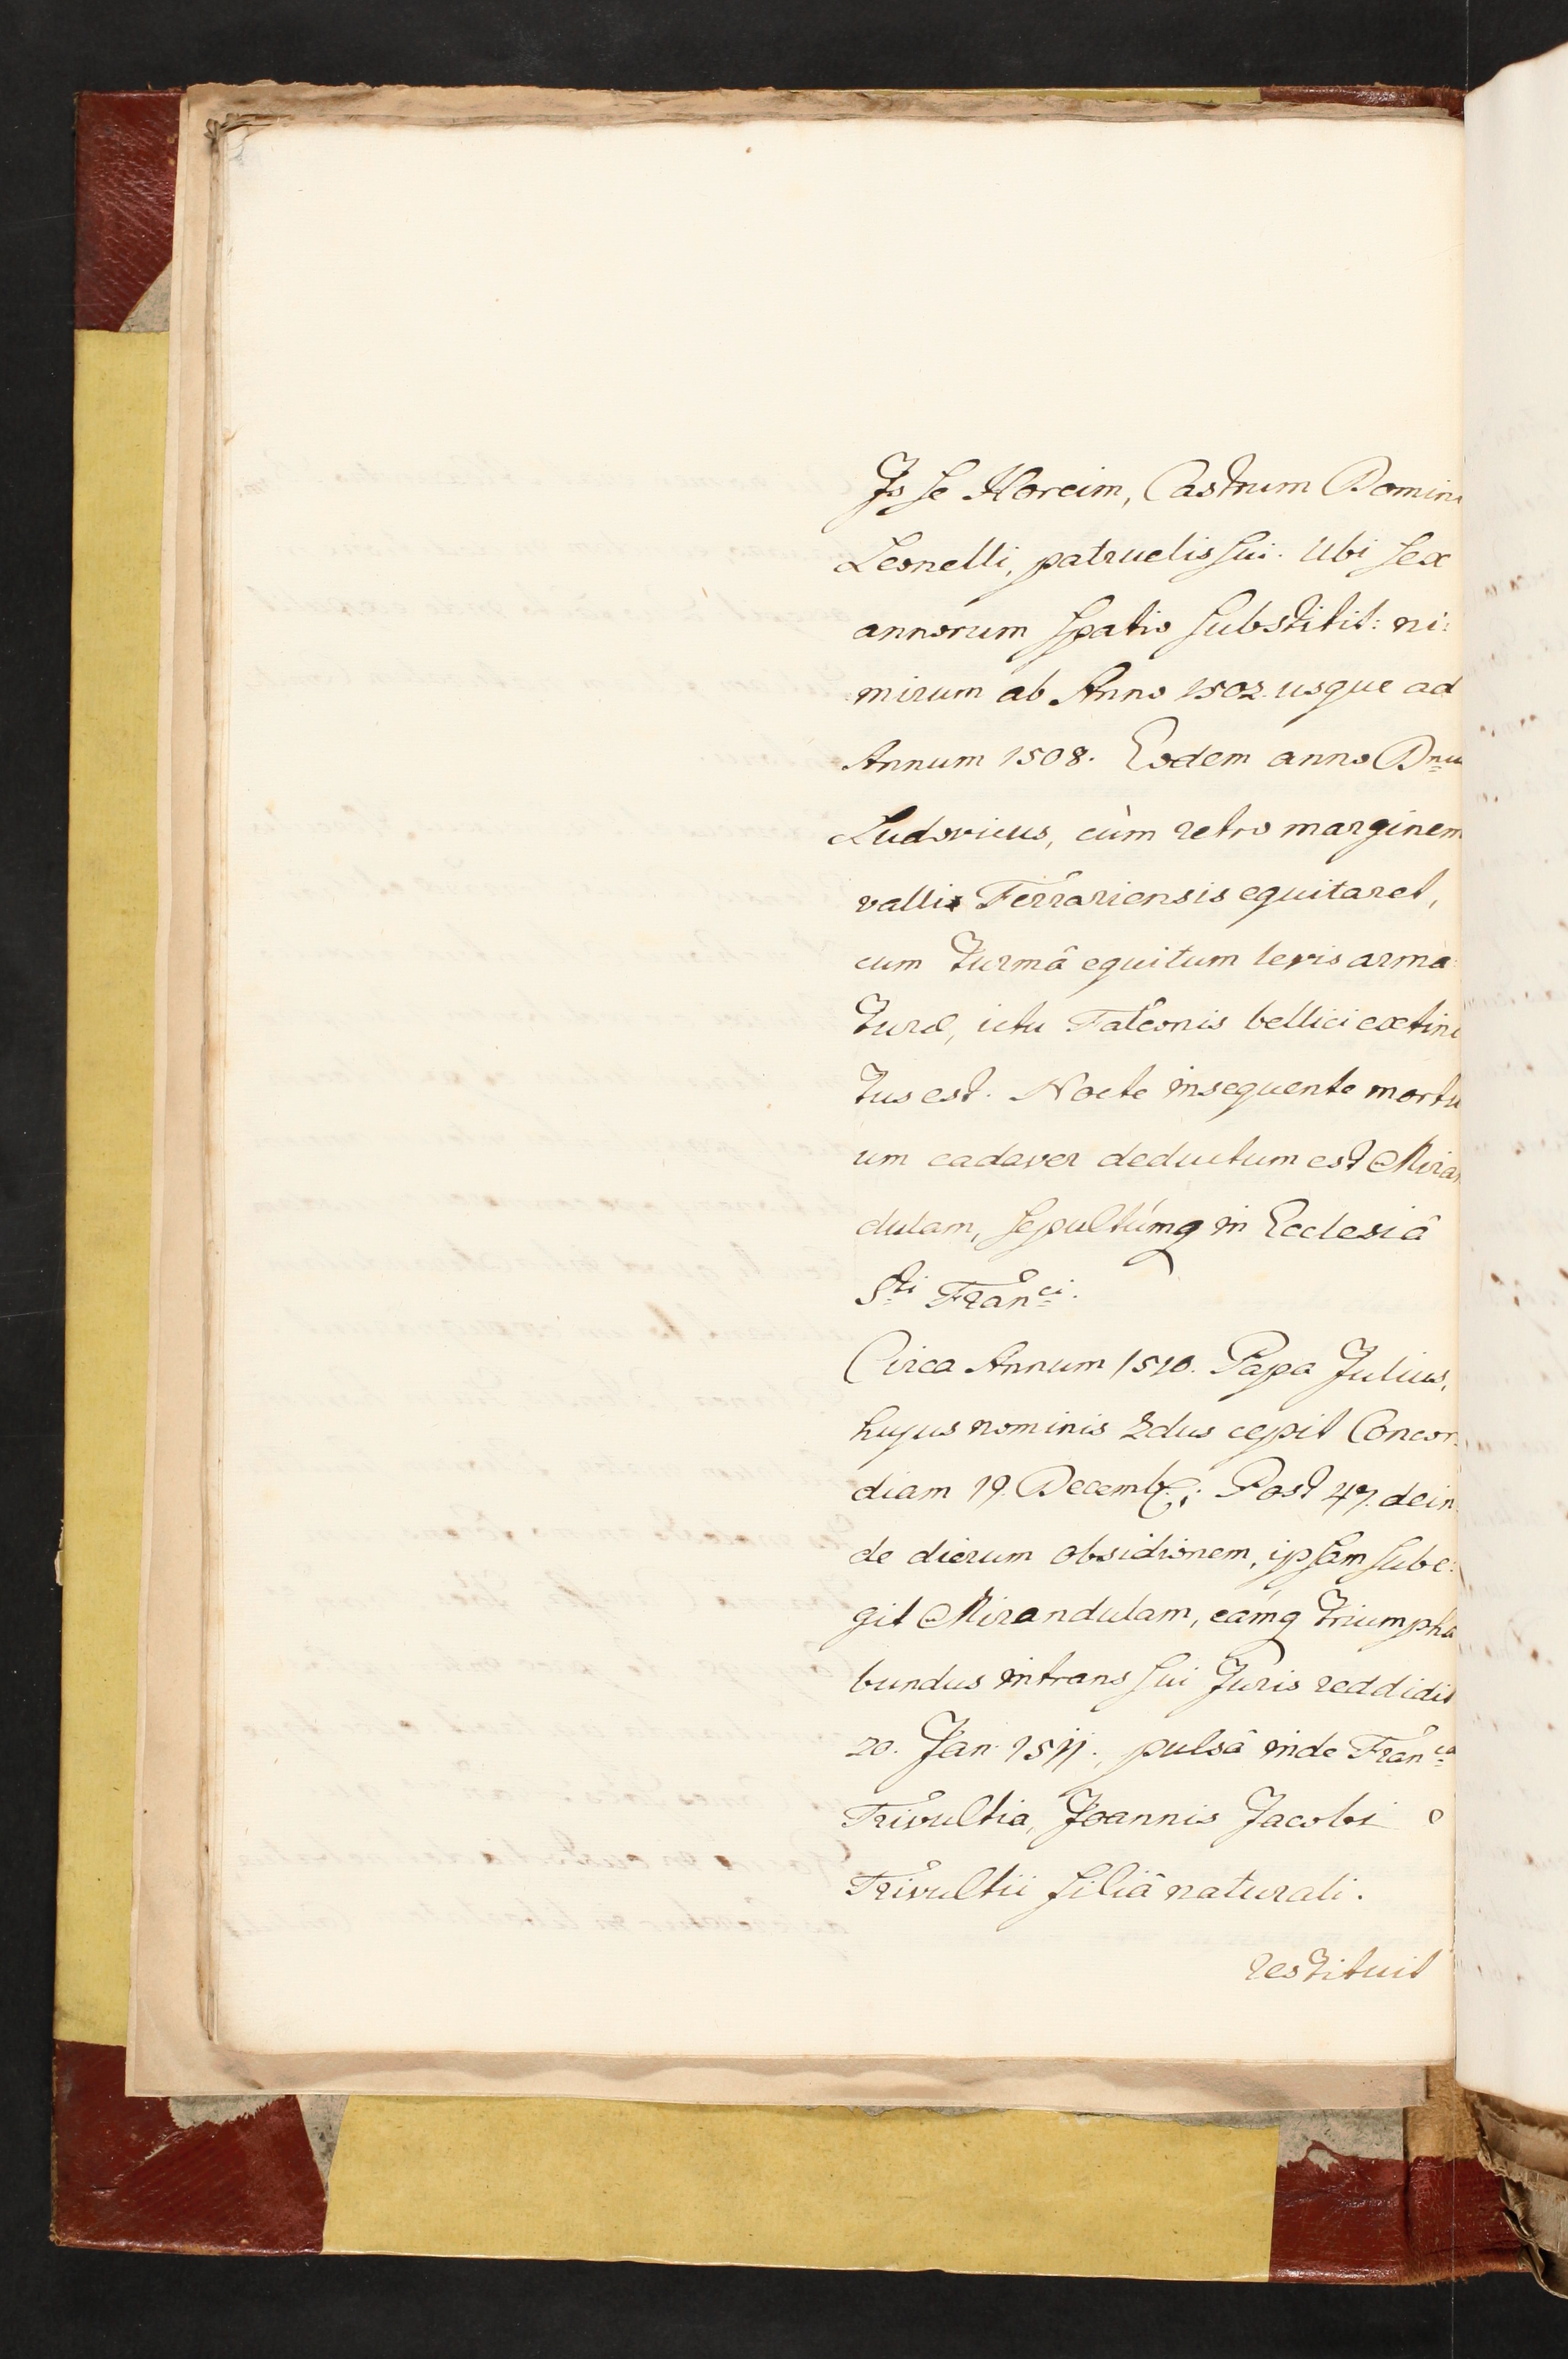 Is se Horcim, Castrum Domini
Leonelli, patruelis sui. Ubi sex
annorum spatio substitit: ni:
mirum ab Anno 1502. usque ad
Annum 1508. Eodem anno Dnu
Ludovicus, cùm retro marginem
vallis Ferrariensis equitaret,
cum turmâ equitum levis arma
turæ, ictu Falconis bellici extinc
tus est. Nocte insequente mortu
um cadaver deductum est Miran
dulam, sepultúmq in Ecclesiâ
Sti Franci.
Circa Annum 1510. Papa Julius,
hujus nominis 2dus cepit Concor:
diam 19. Decemb. Post 47. dein
de dierum obsidionem, ipsam sube:
git Mirandulam, eámq triumpha
bundus intrans sui Juris reddidit
20. Jan. 1511., pulsâ inde Franca
Trivultia, Joannis Jacobi
Trivultii filiâ naturali.
restituit